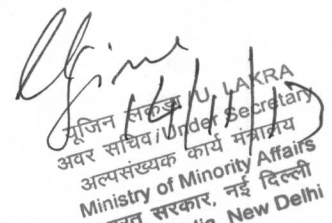 14/11/17
यूजिन लकड़ा / U. LAKRA
अवर सचिव / Under Secretary
अल्पसंख्यक कार्य मंत्रालय
Ministry of Minority Affairs
सरकार, नई दिल्ली
New Delhi